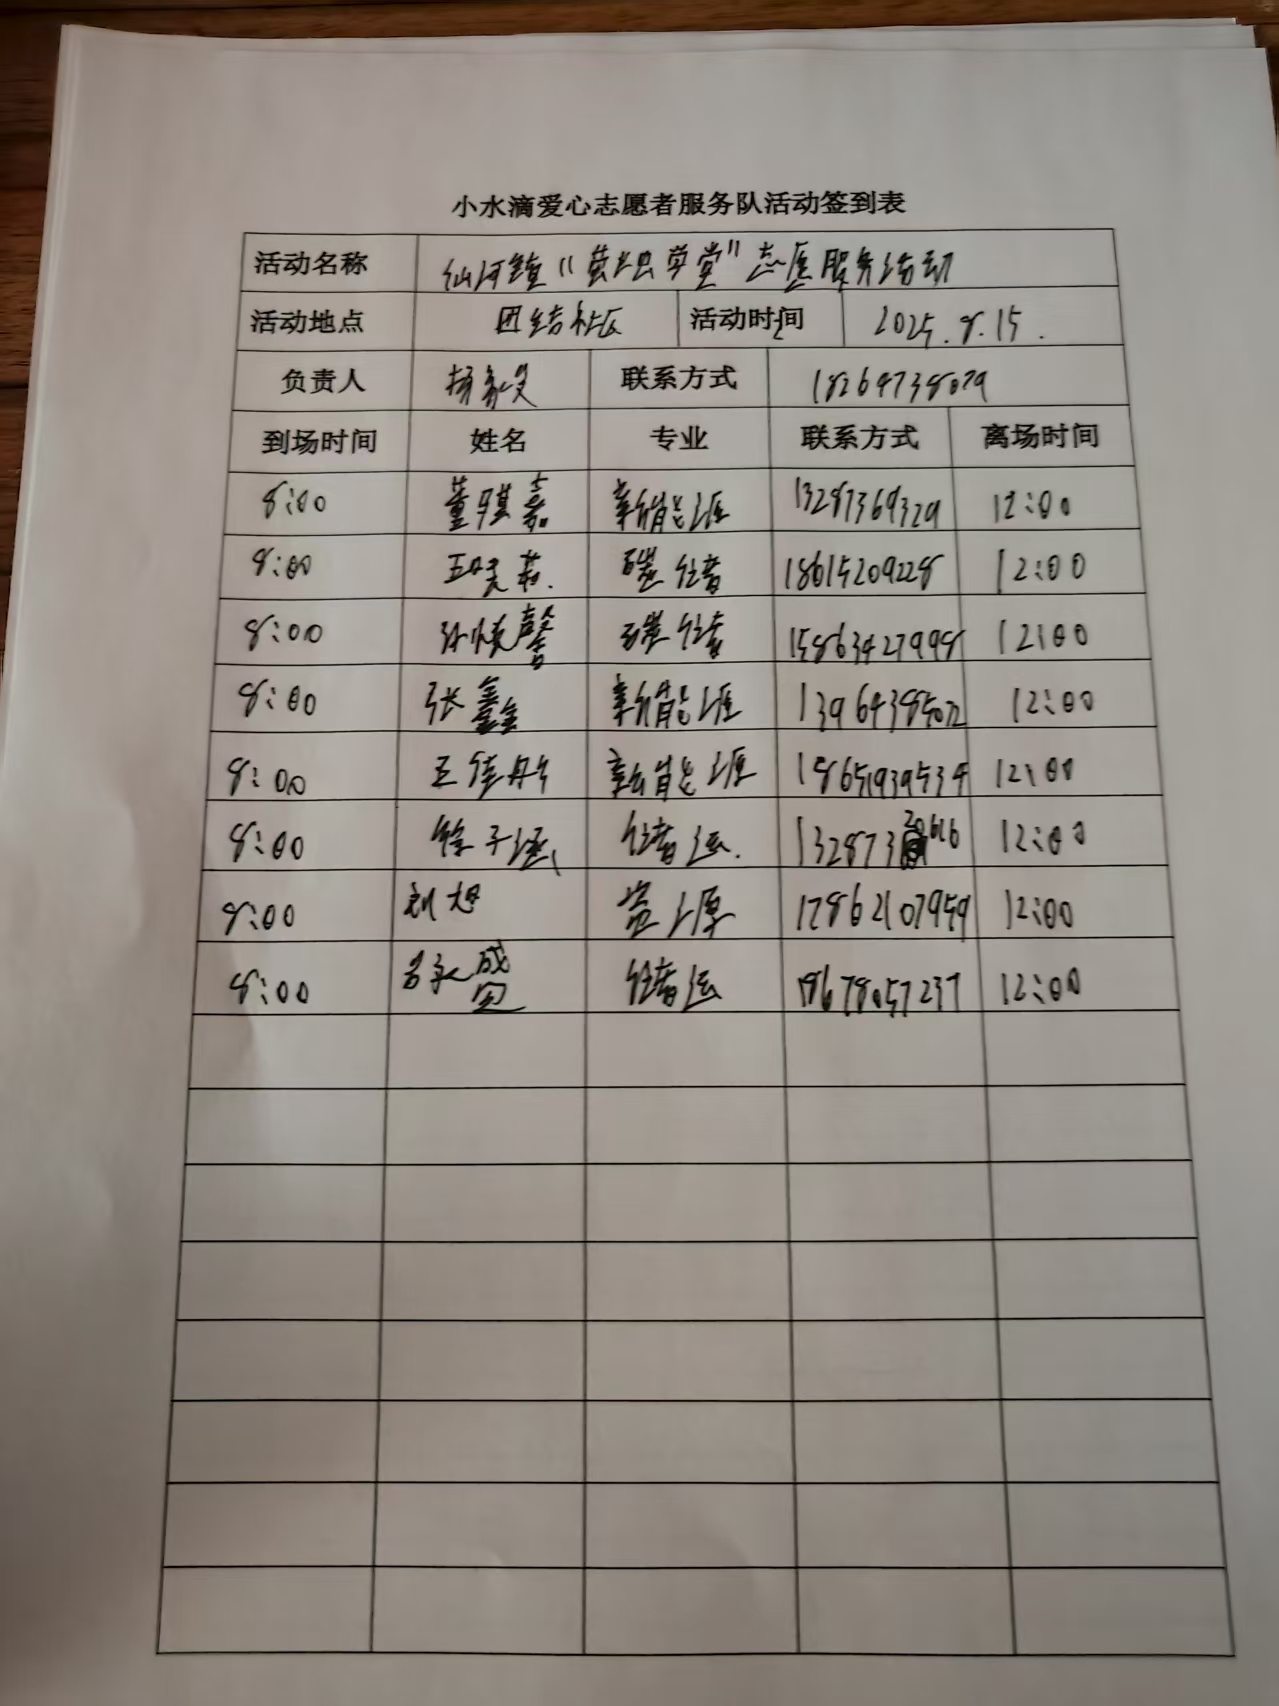 小水滴爱心志愿者服务队活动签到表
活动名称 仙河镇“萤火虫学堂”志愿服务活动
活动地点 团结社区 活动时间 2025.8.15.
负责人 杨 联系方式 18264738079
到场时间 姓名 专业 联系方式 离场时间
8:00 董骐嘉 新能源 13287369329 12:00
8:00 碳储 18615209228 12:00
8:00 孙馨 碳储 15863427998 12:00
8:00 张鑫鑫 新能源 13964385072 12:00
8:00 王佳彤 新能源 18651939534 12:00
8:00 徐子涵 储运. 13287320616 12:00
8:00 刘旭 资源 17862107959 12:00
8:00 吕永盛 储运 19678057237 12:00